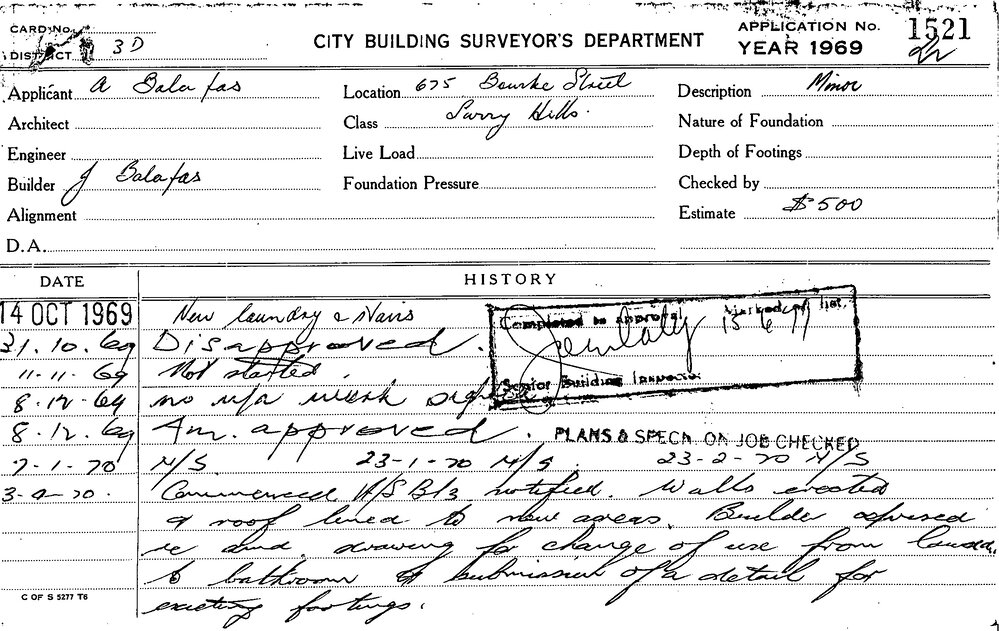 CARD No.
DISTRICT 3D
CITY BUILDING SURVEYOR'S DEPARTMENT
APPLICATION No. 1521
YEAR 1969
Applicant A Balafas
Location 675 Bourke Street
Description Minor
Architect
Class Surry Hills.
Nature of Foundation
Engineer
Live Load
Depth of Footings
Builder J Balafas
Foundation Pressure
Checked by
Alignment
Estimate $500
D.A.
DATE HISTORY
14 OCT 1969 New laundry & stairs
Completed to approval Marked off list.
15 6 71
31.10.69 Disapproved.
11.11.69 Not started.
Senior Building Inspector
8.12.69 no u/a work
8.12.69 Am. approved. PLANS & SPECN. ON JOB CHECKED
7-1-70 N/S. 23-1-70 N/S. 23-2-70 N/S
Commenced notified. Walls erected
& roof lined to new areas. Builder advised
re amd. drawing for change of use from
to bathroom & submission of a detail for
existing footings.
C OF S 5277 T6